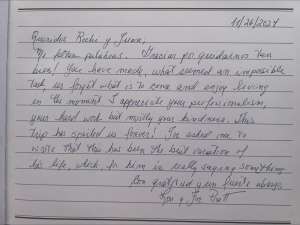 10/26/2024
Queridos Rocki y Juana;
Me faltan palabras. Gracias por guidarnos tan
bien! You have made, what seemed an impossible
task, us forget what is to come and enjoy living
in the moment. I appreciate your professionalism,
your hard work but mostly your kindness. This
trip has spoiled us forever! Joe asked me to
write that this has been the best vacation of
his life, which for him is really saying something
Con gratitud y un fuerte abrazo
y Joe